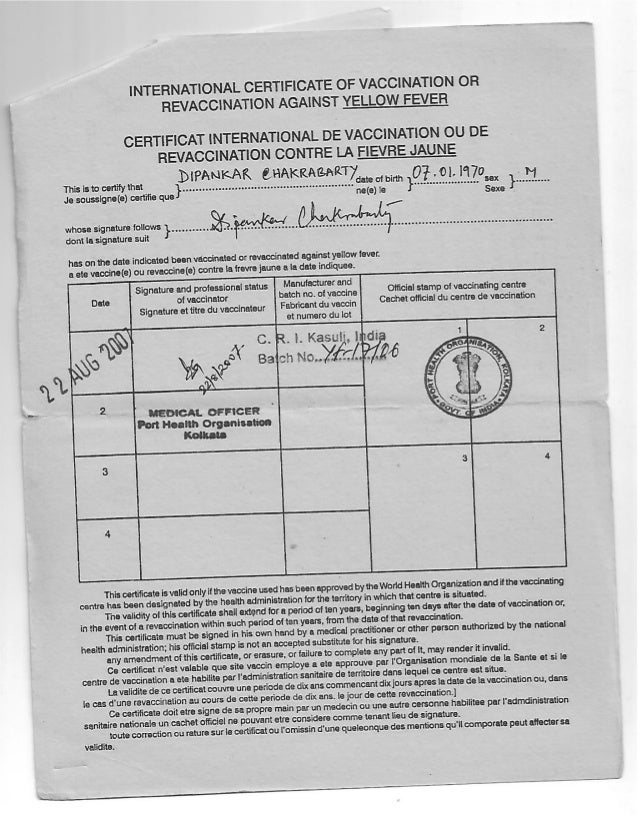 INTERNATIONAL CERTIFICATE OF VACCINATION OR
REVACCINATION AGAINST YELLOW FEVER
CERTIFICAT INTERNATIONAL DE VACCINATION OU DE
REVACCINATION CONTRE LA FIEVRE JAUNE
This is to certify that } DIPANKAR CHAKRABARTY date of birth } 07.01.1970 sex } M
Je soussigne(e) certifie que ne(e) le Sexe
whose signature follows } Dipankar Chakrabarty
dont la signature suit
has on the date indicated been vaccinated or revaccinated against yellow fever.
a ete vaccine(e) ou revaccine(e) contre la frevre jaune a la date indiquee.
Date
Signature and professional status
of vaccinator
Signature et titre du vaccinateur
Manufacturer and
batch no. of vaccine
Fabricant du vaccin
et numero du lot
Official stamp of vaccinating centre
Cachet officiel du centre de vaccination
22 AUG 2007
22/8/2007
C. R. I. Kasuli, India
Batch No.
1
2
PORT HEALTH ORGANISATION, KOLKATA
GOVT. OF INDIA
2
MEDICAL OFFICER
Port Health Organisation
Kolkata
3
3
4
4
This certificate is valid only if the vaccine used has been approved by the World Health Organization and if the vaccinating
centre has been designated by the health administration for the territory in which that centre is situated.
The validity of this certificate shall extend for a period of ten years, beginning ten days after the date of vaccination or,
in the event of a revaccination within such period of ten years, from the date of that revaccination.
This certificate must be signed in his own hand by a medical practitioner or other person authorized by the national
health administration; his official stamp is not an accepted substitute for his signature.
any amendment of this certificate, or erasure, or failure to complete any part of It, may render it invalid.
Ce certificat n'est valable que site vaccin employe a ete approuve par l'Organisation mondiale de la Sante et si le
centre de vaccination a ete habilite par l'administration sanitaire de territoire dans lequel ce centre est situe.
La validite de ce certificat couvre une periode de dix ans commencant dix jours apres la date de la vaccination ou, dans
le cas d'une revaccination au cours de cette periode de dix ans. le jour de cette revaccination.]
Ce certificat doit etre signe de sa propre main par un medecin ou une autre personne habilitee par l'admdinistration
sanitaire nationale un cachet officiel ne pouvant etre considere comme tenant lieu de signature.
toute correction ou rature sur le certificat ou l'omissin d'une queleonque des mentions qu'il comporate peut affecter sa
validite.